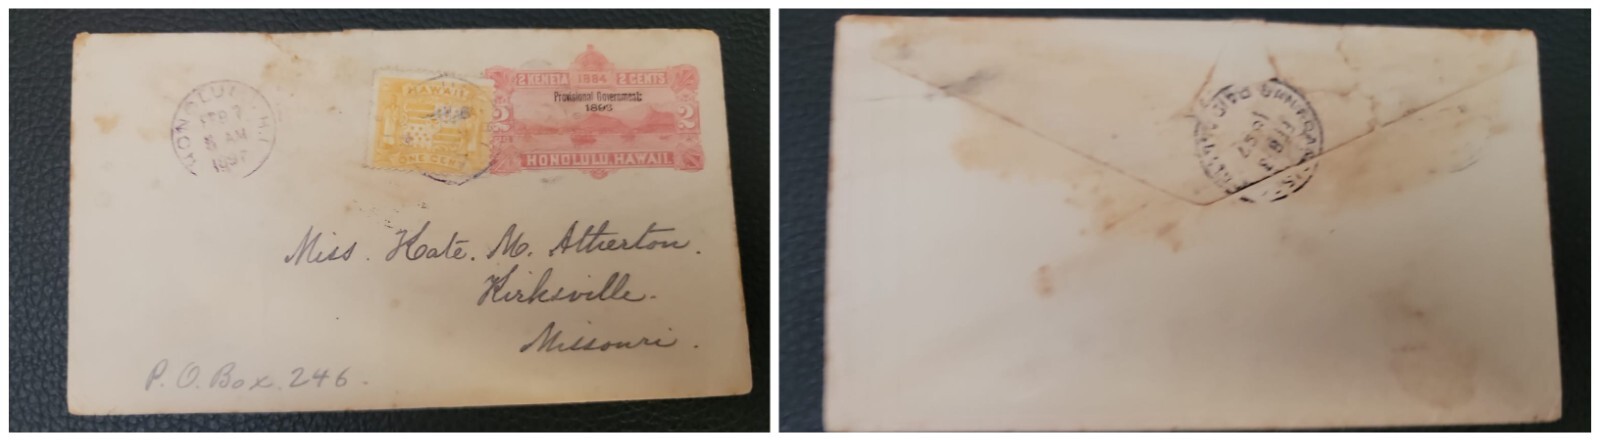 HONOLULU H.I.
FEB 7
8 AM
1897
HAWAII
ONE CENT
2 KENETA 1884 2 CENTS
Provisional Government
1893
2 2
HONOLULU, HAWAII.
Miss. Kate. M. Atherton.
Kirksville.
Missouri.
P. O. Box. 246.